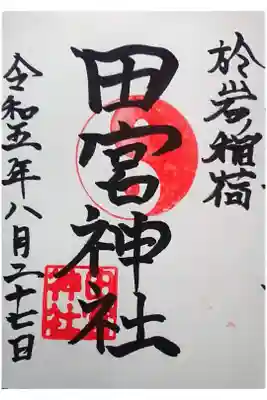 於岩稲荷
田宮神社
令和五年八月二十七日